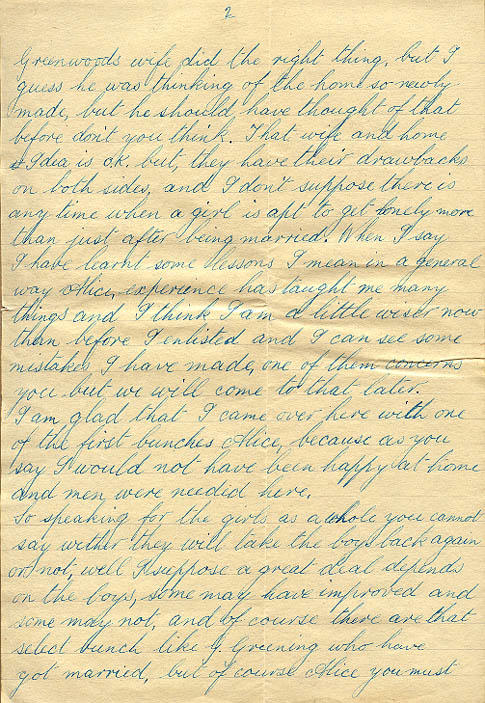 2
Greenwoods wife did the right thing, but I
guess he was thinking of the home so newly
made, but he should have thought of that
before don't you think. That wife and home
Idea is o.k. but, they have their drawbacks
on both sides, and I don't suppose there is
any time when a girl is apt to get lonely more
than just after being married. When I say
I have learnt some lessons I mean in a general
way Alice, experience has taught me many
things and I think I am a little wiser now
than before I enlisted and I can see some
mistakes, I have made, one of them concerns
you but we will come to that later.
I am glad that I came over here with one
of the first bunches Alice, because as you
say I would not have been happy at home
and men were needed here.
So speaking for the girls as a whole you cannot
say wether they will take the boys back again
or not, well I suppose a great deal depends
on the boys, some may have improved and
some may not, and of course there are that
select bunch like G. Greening who have
got married, but of course Alice you must